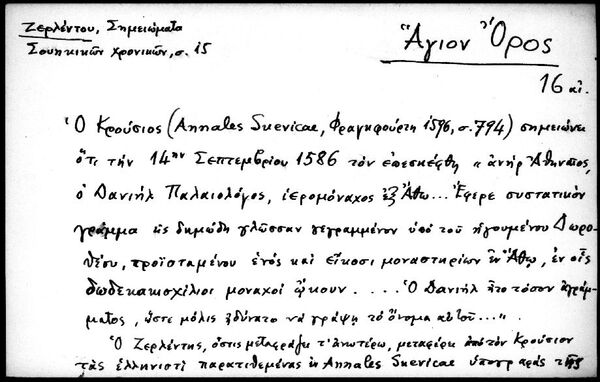 Ζερλέντου, Σημειώματα
Σουηκικῶν χρονικῶν, σ. 15
Ἅγιον Ὄρος
16 αἰ.
Ὁ Κρούσιος (Annales Suevicae, Φραγκφούρτη 1596, σ. 794) σημειώνει
ὅτι τὴν 14ην Σεπτεμβρίου 1586 τὸν ἐπεσκέφθη « ἀνὴρ Ἀθηναῖος,
ὁ Δανιὴλ Παλαιολόγος, ἱερομόναχος ἐξ Ἄθω... Ἔφερε συστατικὸν
γράμμα εἰς δημώδη γλῶσσαν γεγραμμένον ὑπὸ τοῦ ἡγουμένου Δωρο-
θέου, προϊσταμένου ἑνὸς καὶ εἴκοσι μοναστηρίων ἐν Ἄθῳ, ἐν οἷς
δωδεκακισχίλιοι μοναχοὶ ᾤκουν .... Ὁ Δανιὴλ ἦτο τόσον ἀγράμ-
ματος, ὥστε μόλις ἠδύνατο νὰ γράψῃ τὸ ὄνομα αὑτοῦ...».
Ὁ Ζερλέντης, ὅστις μεταφράζει τ' ἀνωτέρω, μεταφέρει ἀπὸ τὸν Κρούσιον
τὰς ἑλληνιστὶ παρατιθεμένας ἐν Annales Suevicae ὑπογραφὰς τῆς